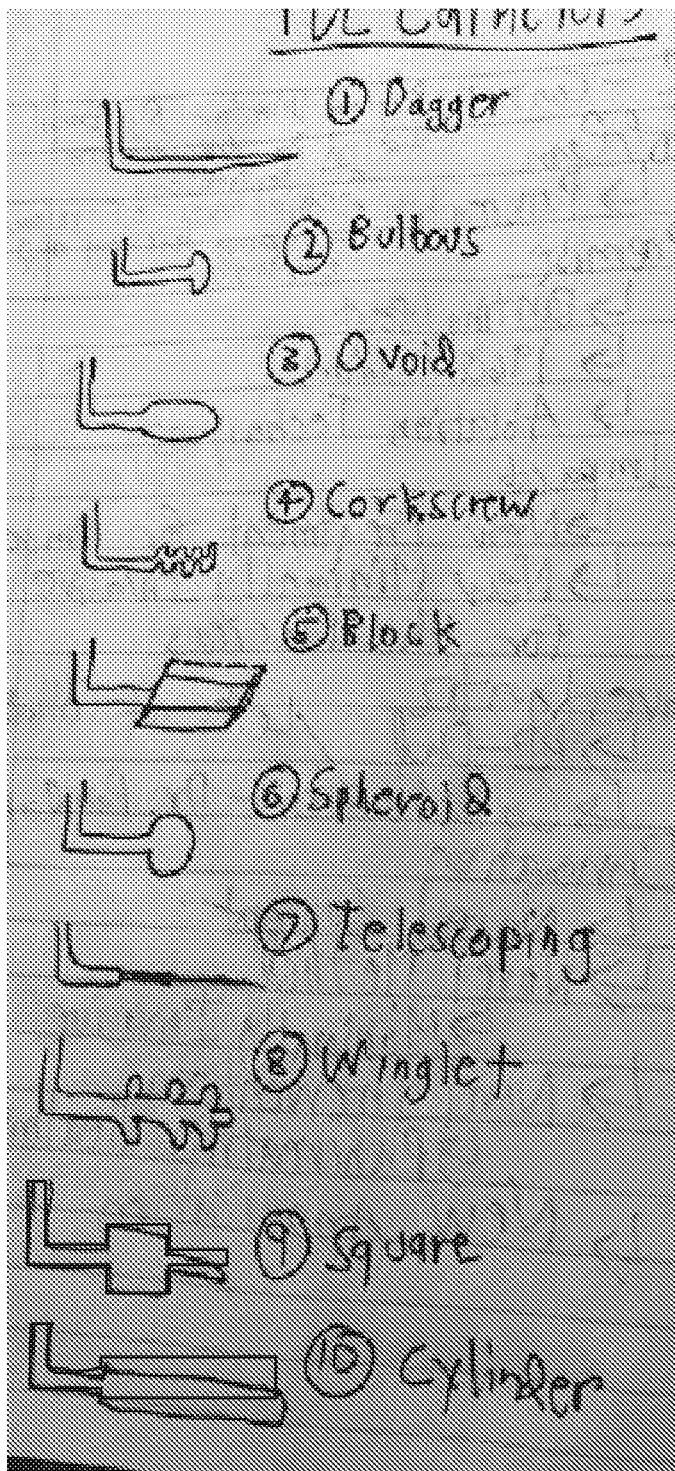 ① Dagger
② Bulbous
③ Ovoid
④ Corkscrew
⑤ Block
⑥ Spheroid
⑦ Telescoping
⑧ Winglet
⑨ Square
⑩ Cylinder